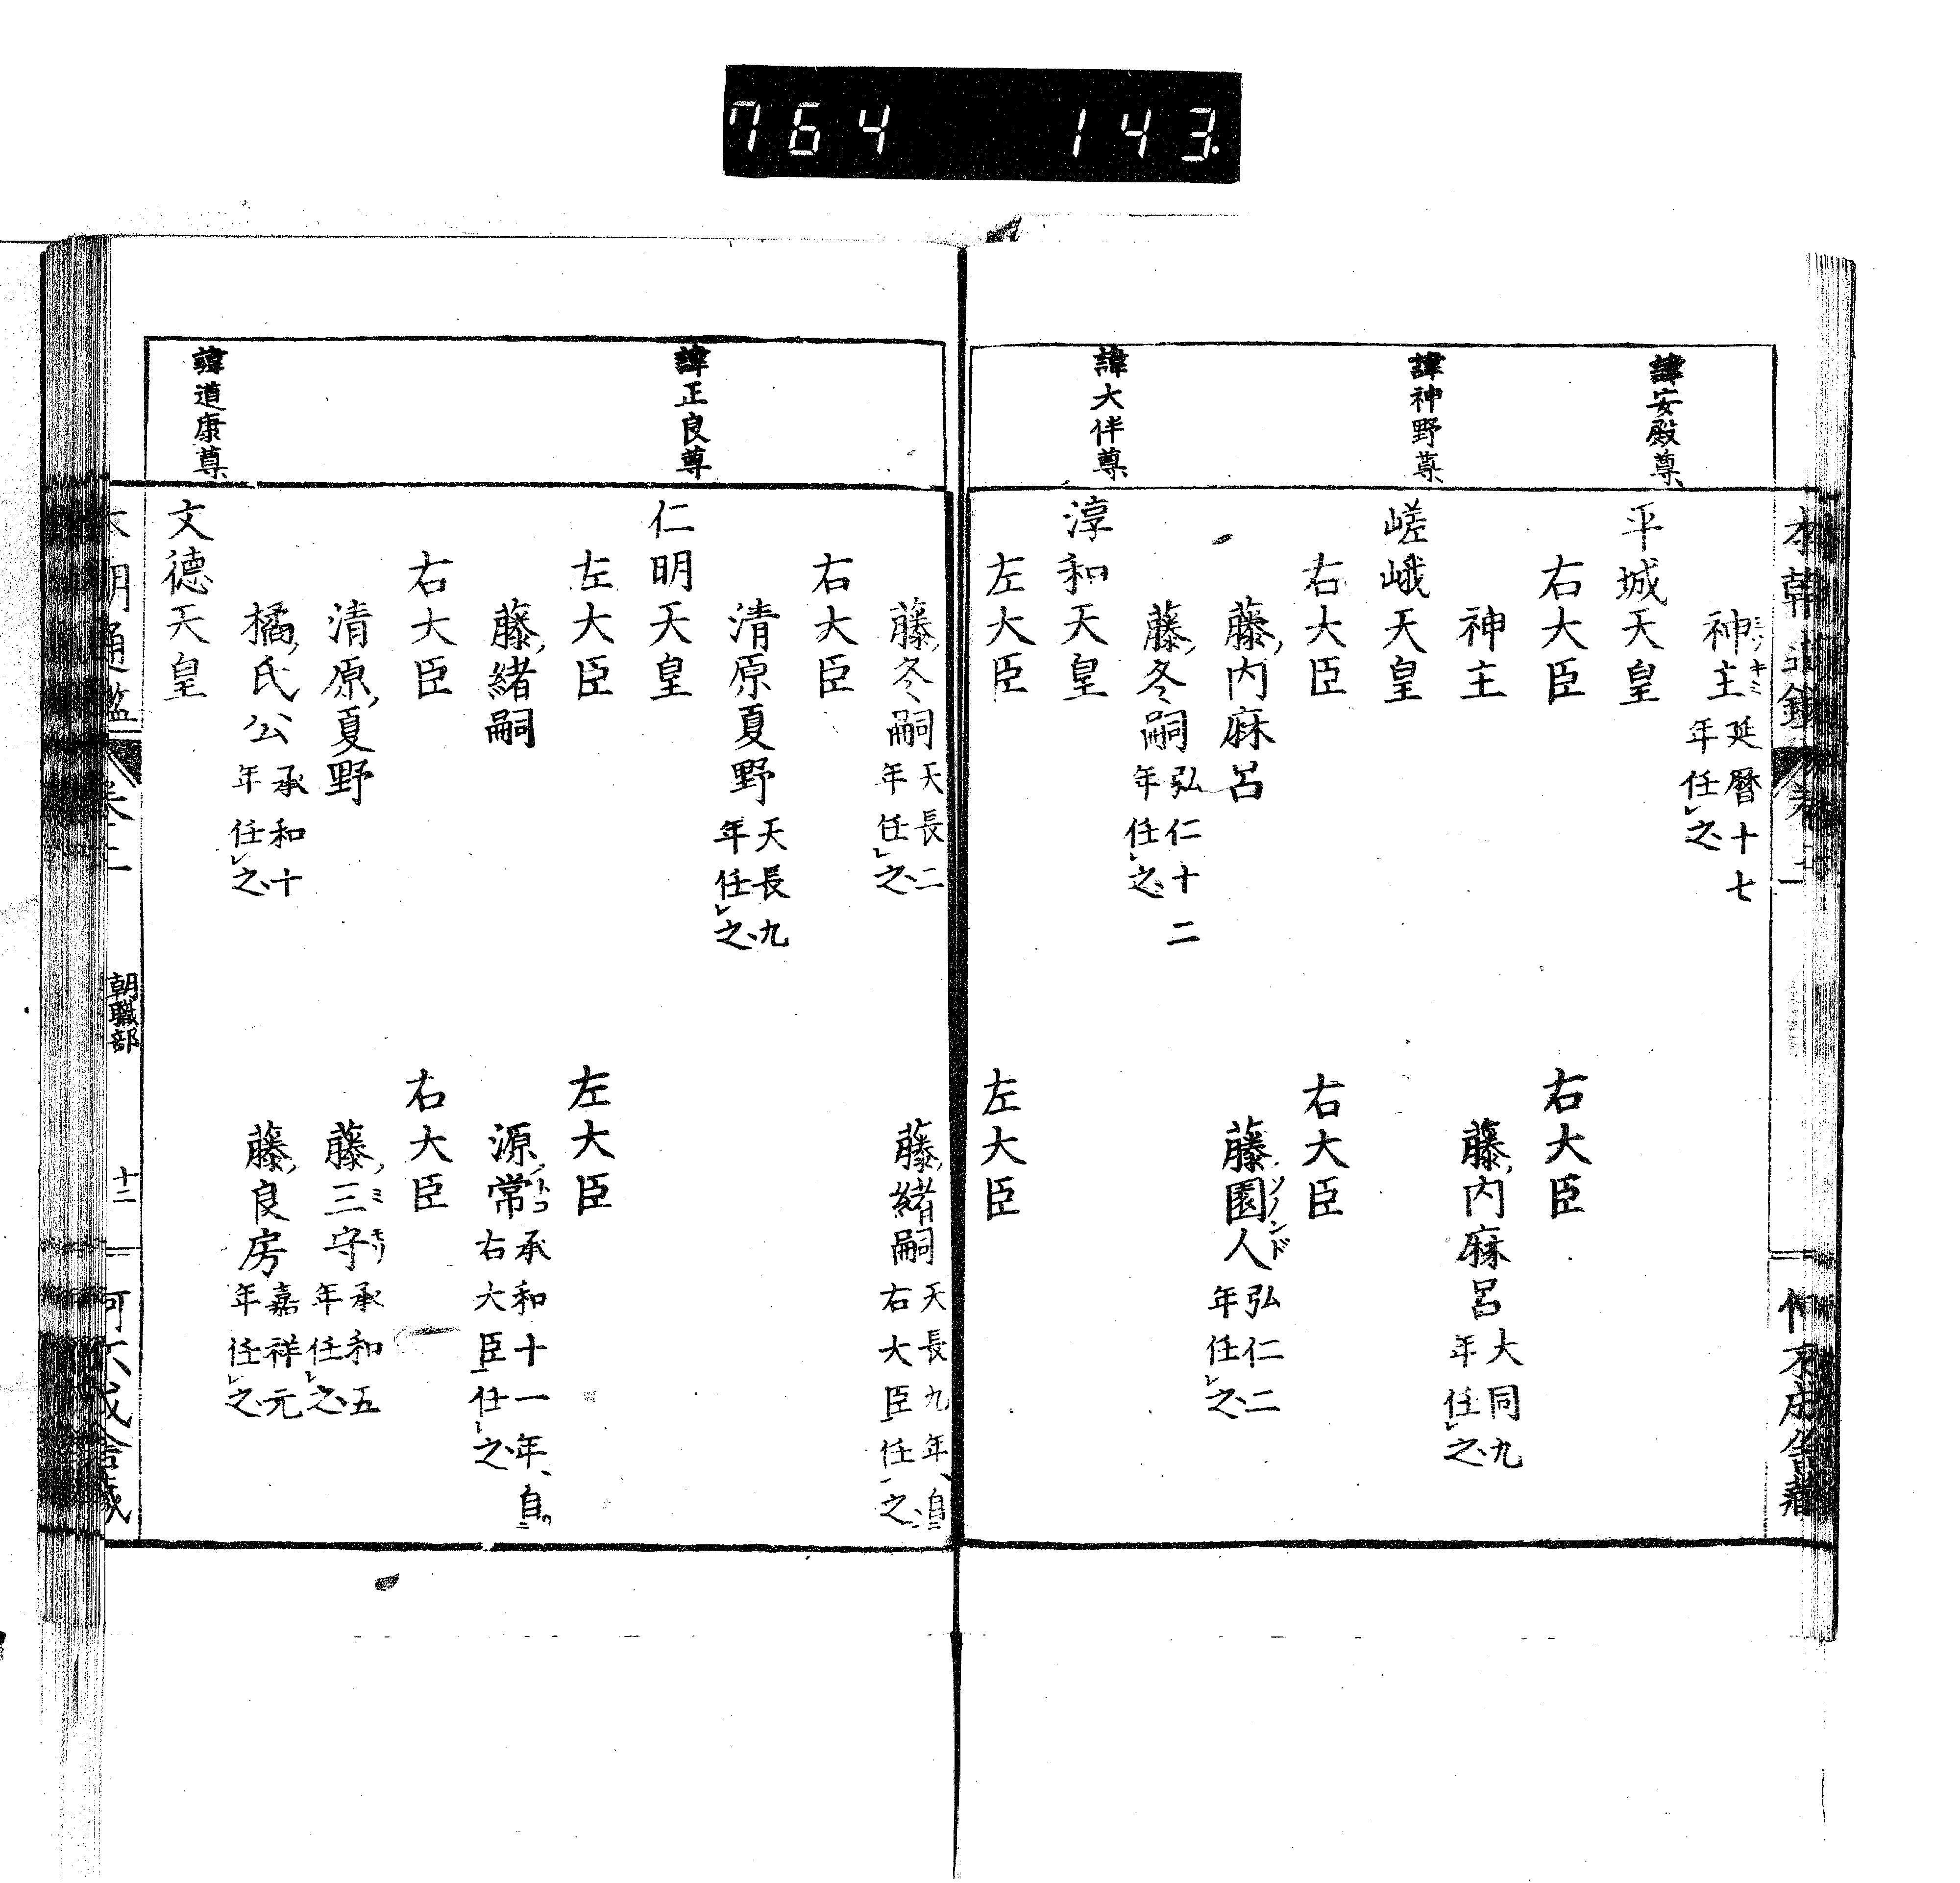 764 143
諱安殿尊
諱神野尊
諱大伴尊
神主 延暦十七年任之
平城天皇
右大臣
右大臣
神主
藤内麻呂 大同九年任之
嵯峨天皇
右大臣
右大臣
藤内麻呂
藤園人 弘仁二年任之
藤冬嗣 弘仁十二年任之
淳和天皇
左大臣
左大臣
諱正良尊
諱道康尊
藤冬嗣 天長二年任之
藤緒嗣 天長九年自右大臣任之
右大臣
清原夏野 天長九年任之
仁明天皇
左大臣
左大臣
藤緒嗣
源常 承和十一年自右大臣任之
右大臣
右大臣
清原夏野
藤三守 承和五年任之
橘氏公 承和十年任之
藤良房 嘉祥元年任之
文徳天皇
朝職部
十二